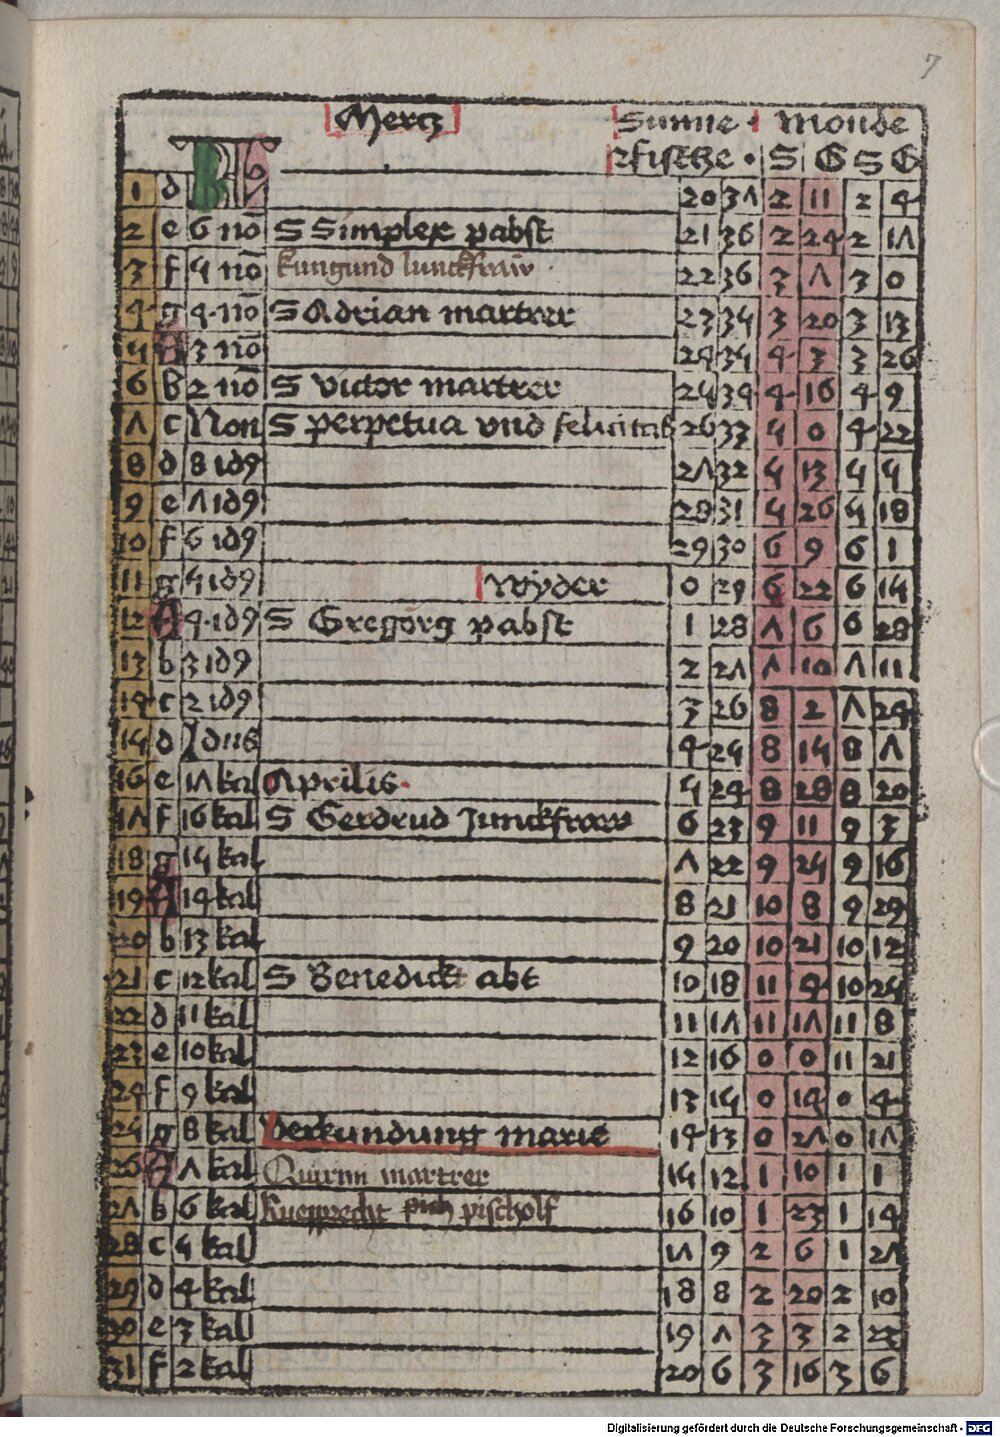 7
Mertz Sunne Monde
KL Fische S G S G
1 d 20 37 2 11 2 4
2 e 6 no S Simplex pabst 21 36 2 24 2 17
3 f 5 no kungund Junckfraw 22 36 3 7 3 0
4 g 4 no S Adrian martrer 23 35 3 20 3 13
5 A 3 no 24 35 4 3 3 26
6 b 2 no S Victor martrer 25 34 4 16 4 9
7 c Non S perpetua vnd felicitas 26 33 5 0 4 22
8 d 8 id9 27 32 5 13 5 5
9 e 7 id9 28 31 5 26 5 18
10 f 6 id9 29 30 6 9 6 1
11 g 5 id9 Wyder 0 29 6 22 6 15
12 A 4 id9 S Gregorg pabst 1 28 7 6 6 28
13 b 3 id9 2 27 7 10 7 11
14 c 2 id9 3 26 8 2 7 24
15 d Idus 4 25 8 15 8 7
16 e 17 kal Aprilis 5 24 8 28 8 20
17 f 16 kal S Gerdrud Junckfraw 6 23 9 11 9 3
18 g 15 kal 7 22 9 25 9 16
19 A 14 kal 8 21 10 8 9 29
20 b 13 kal 9 20 10 21 10 12
21 c 12 kal S Benedickt abt 10 18 11 4 10 25
22 d 11 kal 11 17 11 17 11 8
23 e 10 kal 12 16 0 0 11 21
24 f 9 kal 13 15 0 14 0 4
25 g 8 kal Verkundung marie 14 13 0 27 0 17
26 A 7 kal Quirin martrer 15 12 1 10 1 1
27 b 6 kal Ruepprecht pischolf 16 10 1 23 1 15
28 c 5 kal 17 9 2 6 1 27
29 d 4 kal 18 8 2 20 2 10
30 e 3 kal 19 7 3 3 2 23
31 f 2 kal 20 6 3 16 3 6
Digitalisierung gefördert durch die Deutsche Forschungsgemeinschaft - DFG